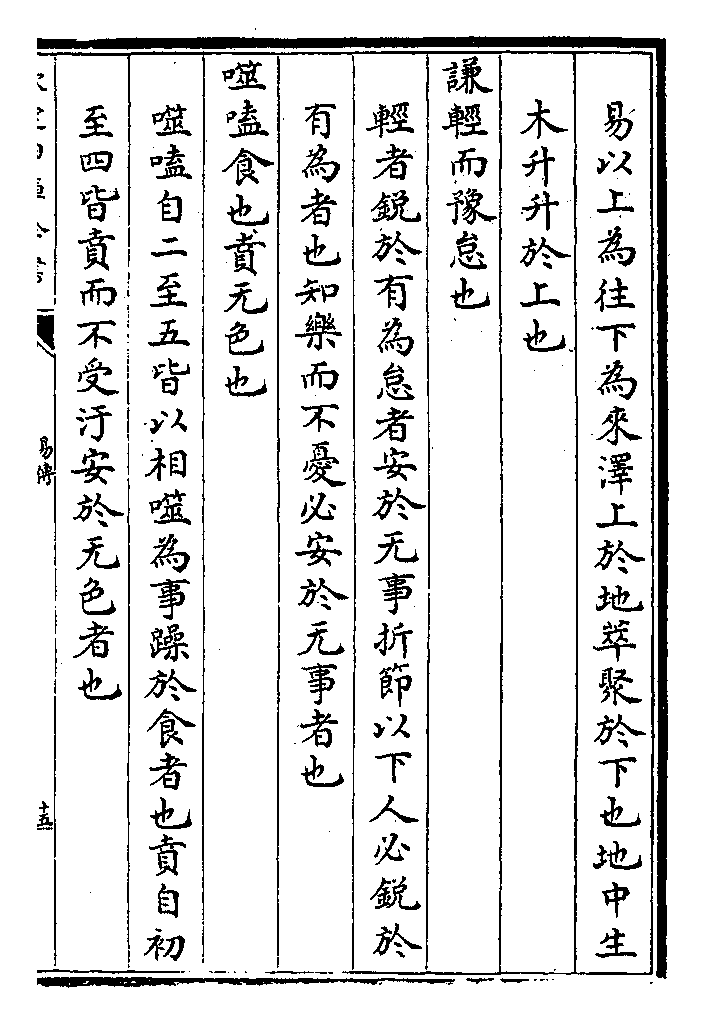 易以上為往下為來澤上於地萃聚於下也地中生
木升升於上也
謙輕而豫怠也
輕者銳於有為怠者安於无事折節以下人必銳於
有為者也知樂而不憂必安於无事者也
噬嗑食也賁无色也
噬嗑自二至五皆以相噬為事躁於食者也賁自初
至四皆賁而不受汙安於无色者也
易傳
十五